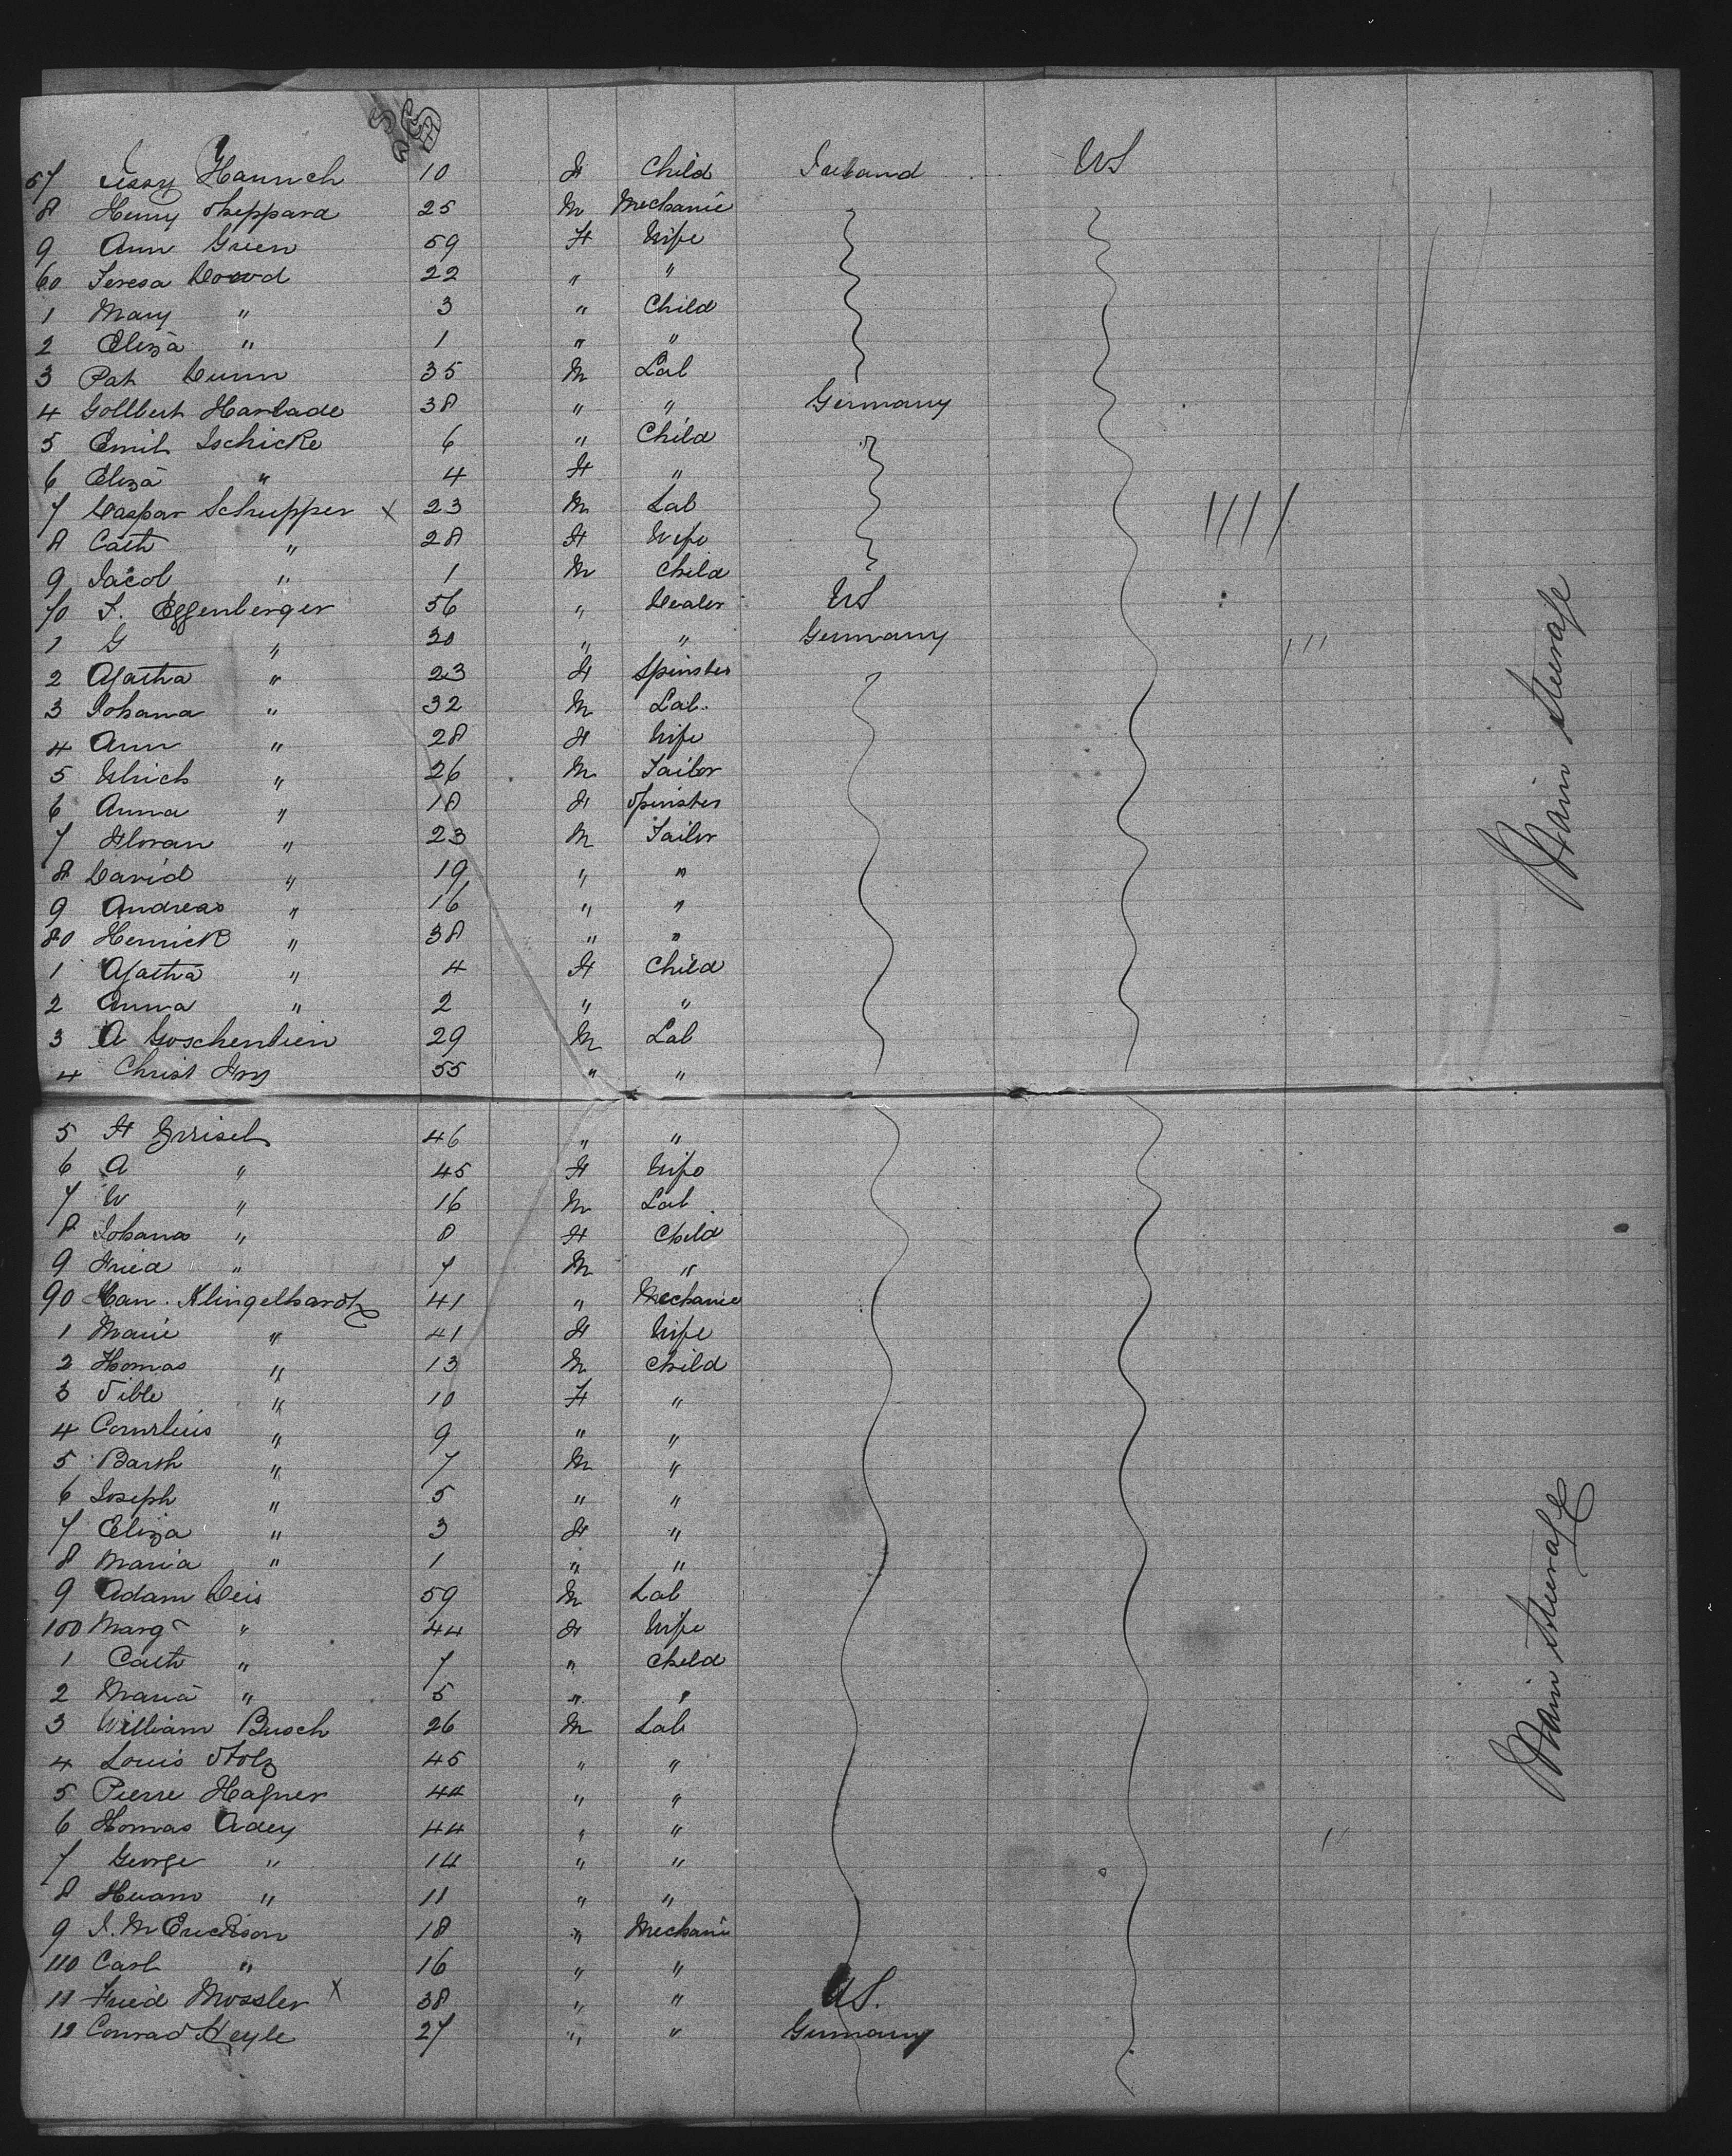 57 Jessy Hannich 10 F Child Ireland US
8 Henry Sheppard 25 M Mechanic
9 Ann Green 59 F Wife
60 Teresa Dowd 22 " "
1 Mary " 3 " Child
2 Eliza " 1 " "
3 Pat Dunn 35 M Lab
4 Gollbert Harlade 38 " " Germany
5 Emil Ischicke 6 " Child
6 Eliza " 4 F "
7 Caspar Schupper x 23 M Lab
8 Cath " 28 F Wife
9 Jacob " 1 M Child
70 J. Eggenberger 56 " Dealer US
1 G " 30 " " Germany
2 Agatha " 23 F Spinster
3 Johana " 32 M Lab.
4 Ann " 28 F Wife
5 Ulrich " 26 M Tailor
6 Anna " 18 F Spinster
7 Floran " 23 M Tailor
8 David " 19 " "
9 Andreas " 16 " "
80 Henrick " 38 " "
1 Agatha " 4 F Child
2 Anna " 2 " "
3 A Goschenbien 29 M Lab
4 Christ Fry 55 " "
5 F Grisel 46 " "
6 A " 45 F Wife
7 W " 16 M Lab
8 Johana " 8 F Child
9 Fried " 7 M "
90 Han. Klingelhardt 41 " Mechanic
1 Marie " 41 F Wife
2 Thomas " 13 M Child
3 Sible " 10 F "
4 Cornelius " 9 " "
5 Barth " 7 M "
6 Joseph " 5 " "
7 Eliza " 3 F "
8 Maria " 1 " "
9 Adam Deis 59 M Lab
100 Marg " 44 F Wife
1 Cath " 7 " Child
2 Maria " 5 " "
3 William Busch 26 M Lab
4 Louis Stolz 45 " "
5 Pierre Hagner 44 " "
6 Thomas Adey 44 " "
7 George " 14 " "
8 Hiram " 11 " "
9 J. M Erickson 18 " Mechanic
110 Carl " 16 " "
11 Fried Mossler x 38 " " US.
12 Conrad Heyle 27 " " Germany
Main Steerage
Main Steerage